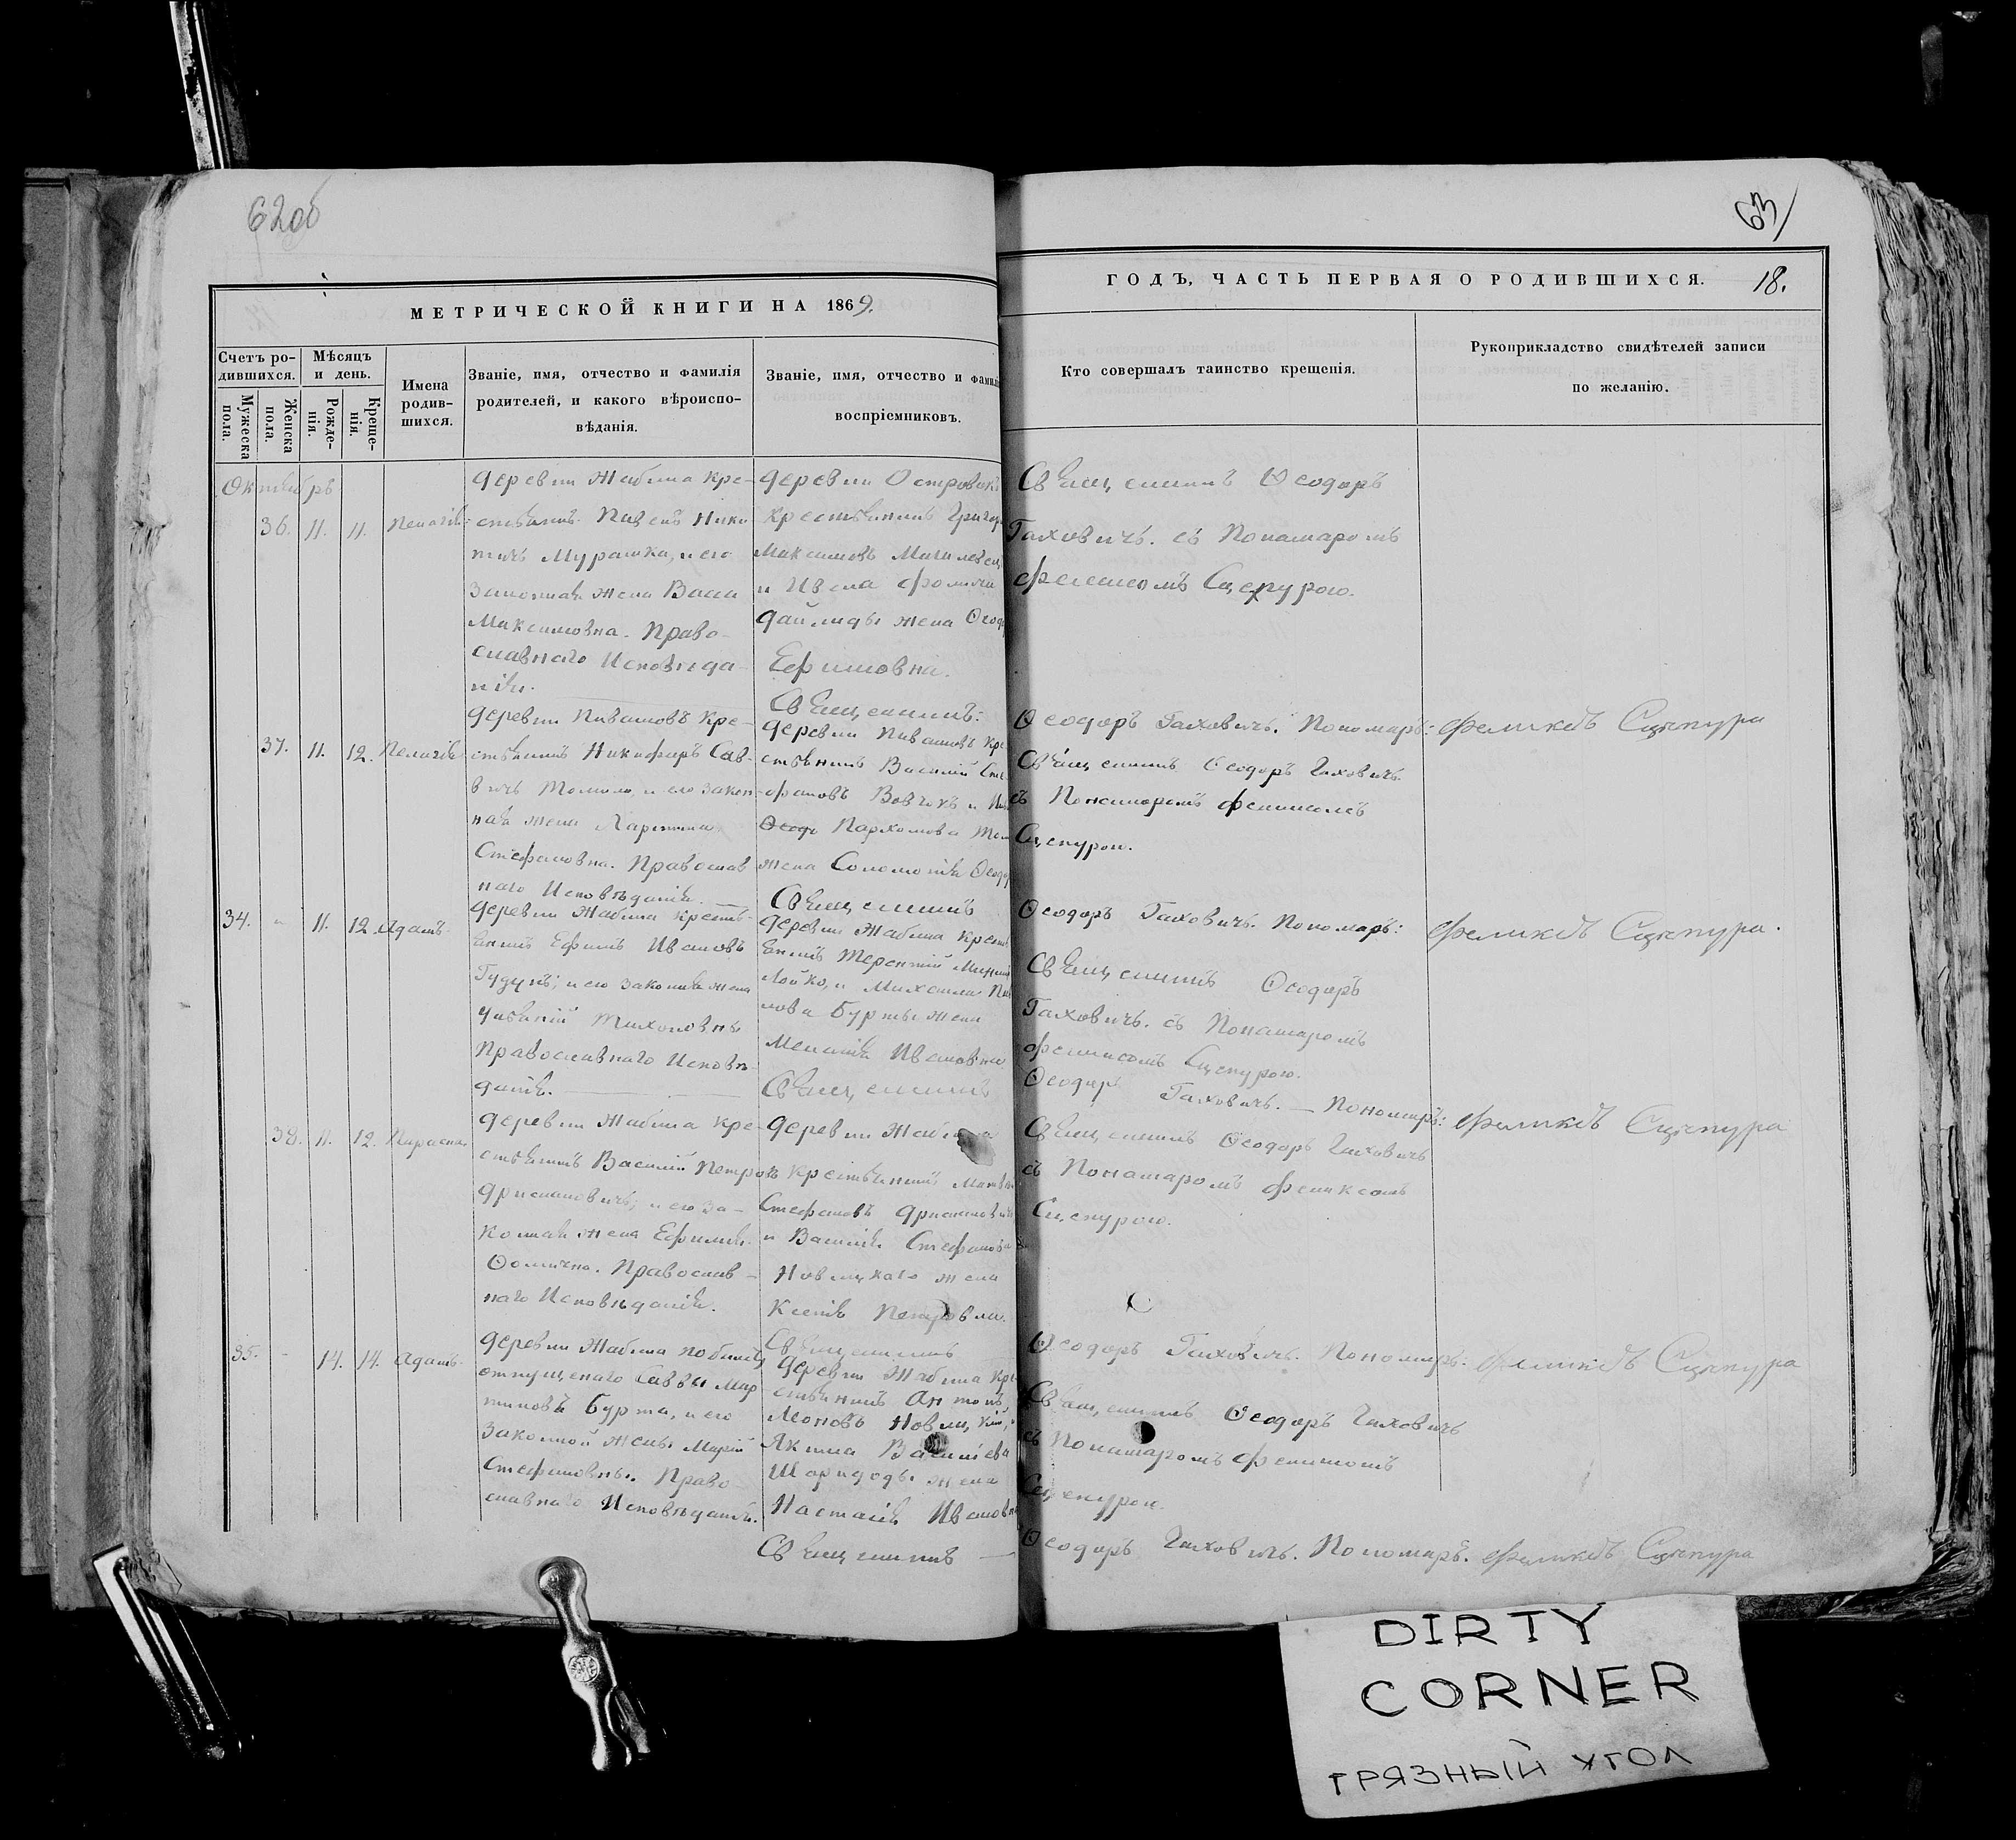 62об
63
МЕТРИЧЕСКОЙ КНИГИ НА 1869.
ГОДЪ, ЧАСТЬ ПЕРВАЯ О РОДИВШИХСЯ. 18.
Счетъ ро-
дившихся.
Мужеска
пола.
Женска
пола.
Мѣсяцъ
и день.
Рожде-
нія.
Креще-
нія.
Имена
родив-
шихся.
Званіе, имя, отчество и фамилія
родителей, и какого вѣроиспо-
вѣданія.
Званіе, имя, отчество и фамилі
воспріемниковъ.
Кто совершалъ таинство крещенія.
Рукоприкладство свидѣтелей записи
по желанію.
Октябрь
36. 11. 11.
деревни Жабина кре-
Мурашка, и его
законная жена Васса
Максимовна. Право-
славнаго Исповѣда-
нія.
деревни Островокъ
Крестьянинъ Григор
Максимовъ
и Ивана Фомича
жена Ѳеодо
Ефимовна.
Священникъ Ѳеодоръ
Гаховичъ. съ Понамаромъ
Феликсомъ Сцепурою.
Священникъ:
Ѳеодоръ Гаховичъ. Пономаръ: Феликсъ Сцепура
37. 11. 12. Пелагія
деревни Пивашовъ Кре-
стьянинъ Никифоръ Сав-
вичъ Томило, и его закон-
ная жена
Стефановна. Православ
наго Исповѣданія.
деревни Пивашовъ Кре
стьянинъ Василій Сте
фановъ Вовчокъ и
Пархомова
жена Соломонія Ѳеодо
Священникъ Ѳеодоръ Гаховичъ
съ Понамаромъ Феликсомъ
Сцепурою.
Священникъ
Ѳеодоръ Гаховичъ. Пономаръ: Феликсъ Сцепура.
34. - 11. 12. Адамъ
деревни Жабина кресть-
янинъ Ефимъ Ивановъ
Гудунъ; и его законная жена
Тихоновна
Православнаго Исповѣ-
данія.
деревни Жабина Кресть
янинъ Терентій
Лойко, и Михаила
жена
Меланія Ивановна
Священникъ Ѳеодоръ
Гаховичъ. съ Понамаромъ
Феликсомъ Сцепурою.
Священникъ
Ѳеодоръ Гаховичъ. — Пономаръ: Феликсъ Сцепура
38. 11. 12. Параскева
деревни Жабина Кре-
стьянинъ Василій Петровъ
и его за-
конная жена Ефимія
Ѳомична. Православ-
наго Исповѣданія.
деревни Жабина
Крестьянинъ
Стефановъ
и Василія Стефанова
Новицкаго жена
Ксенія Петровна.
Священникъ Ѳеодоръ Гаховичъ
съ Понамаромъ Феликсомъ
Сцепурою.
Священникъ
Ѳеодоръ Гаховичъ. Пономаръ: Феликсъ Сцепура
35. - 14. 14. Адамъ
деревни Жабина
Саввы Мар
тиновъ Бурта, и его
законной жены Маріи
Стефановны. Право-
славнаго Исповѣданія.
деревни Жабина Кре
стьянинъ Антонъ
Леоновъ Новицкій,
Якима Васильева
жена
Настасія Ивановна
Священникъ Ѳеодоръ Гаховичъ
съ Понамаромъ Феликсомъ
Сцепурою.
Священникъ —
Ѳеодоръ Гаховичъ. Пономаръ. Феликсъ Сцепура
DIRTY
CORNER
ГРЯЗНЫЙ УГОЛ